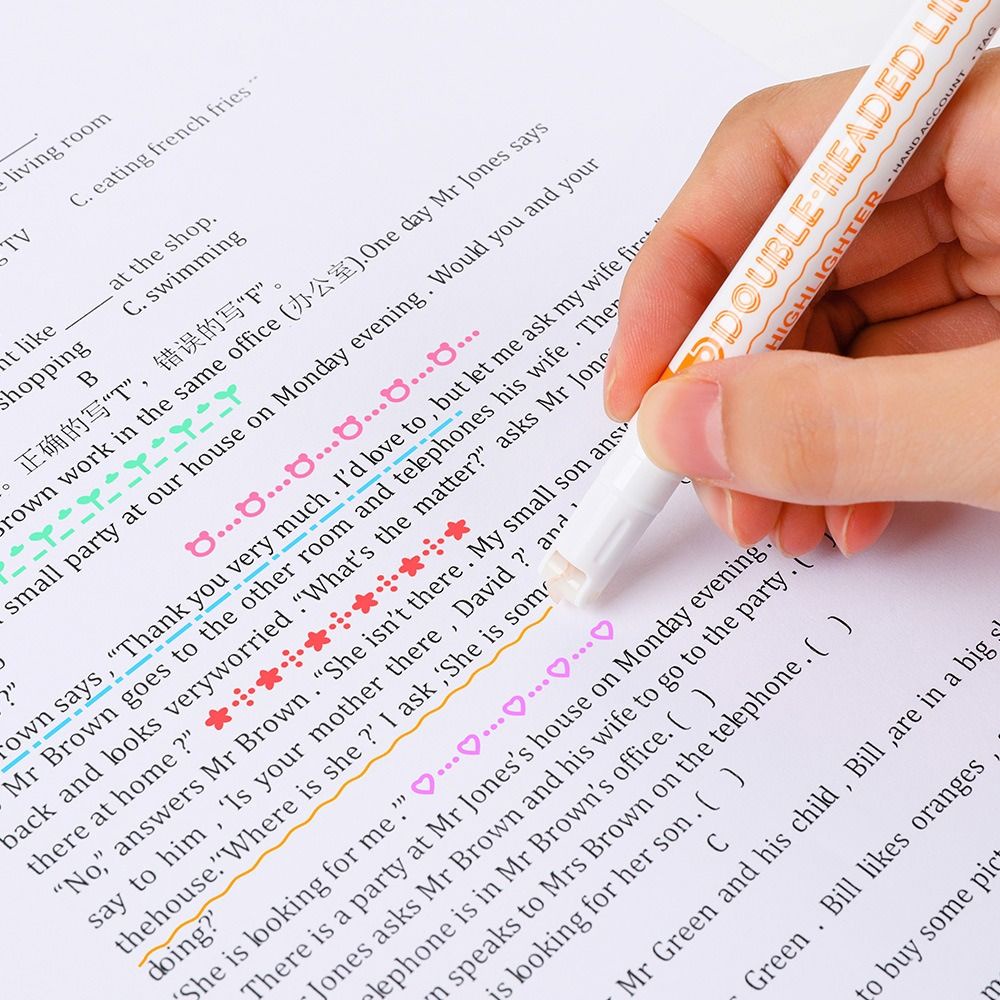 living room
C. eating french fries"
TV
at the shop.
C. swimming
like
shopping
B
正确的写“T”，错误的写“F”。
Brown work in the same office (办公室).One day Mr Jones says
small party at our house on Monday evening . Would you and your
rown says ,“Thank you very much , I'd love to , but let me ask my wife first
Mr Brown goes to the other room and telephones his wife . Then
back and looks veryworried .“What's the matter?” asks Mr Jon
there at home ?”
“No,” answers Mr Brown .“She isn't there . My small son answ
say to him , ‘Is your mother there , David ?’ and
thehouse.”‘Where is she ?’ I ask ,‘She is som
doing?’
‘She is looking for me .’”
There is a party at Mr Jones's house on Monday evening . (
Jones asks Mr Brown and his wife to go to the party . (
elephone is in Mr Brown's office. ( )
n speaks to Mrs Brown on the telephone . ( )
is looking for her son . ( )
C
Mr Green and his child , Bill ,are in a big sh
Green . Bill likes oranges ,
to buy some pict
DOUBLE·HEADED LIN
HIGHLIGHTER · HAND ACCOUNT · TAG